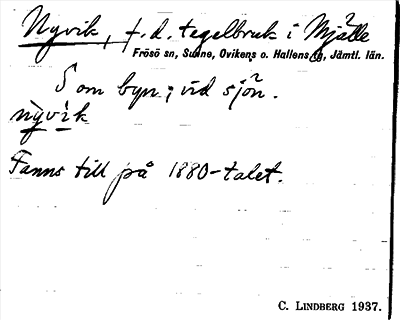 Nyvik, f.d. tegelbruk i Mjälle
Frösö sn, Sunne, Ovikens o. Hallens tg, Jämtl. län.
S om byn; vid sjön.
nỳvìk
Fanns till på 1880-talet.
C. LINDBERG 1937.